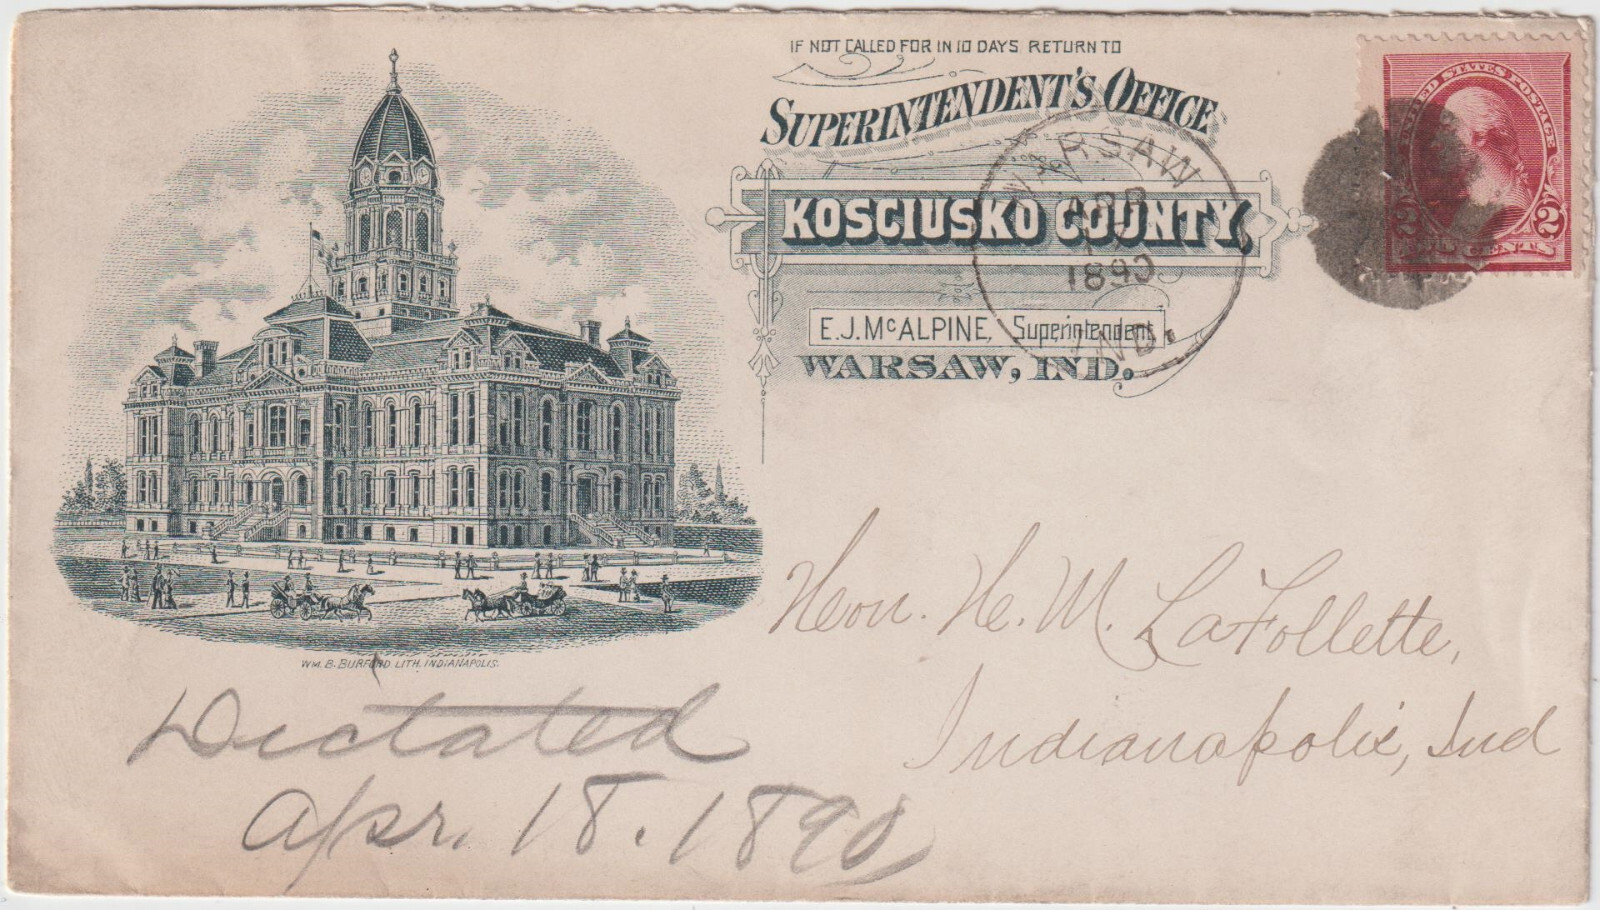 IF NOT CALLED FOR IN 10 DAYS RETURN TO
SUPERINTENDENT'S OFFICE
KOSCIUSKO COUNTY,
E.J. McALPINE, Superintendent
WARSAW, IND.
WARSAW
APR
1890
IND.
UNITED STATES POSTAGE
2 2
CENTS
WM. B. BURFORD LITH. INDIANAPOLIS.
Hon. H. M. LaFollette,
Indianapolis, Ind
Dictated
Apr. 18. 1890